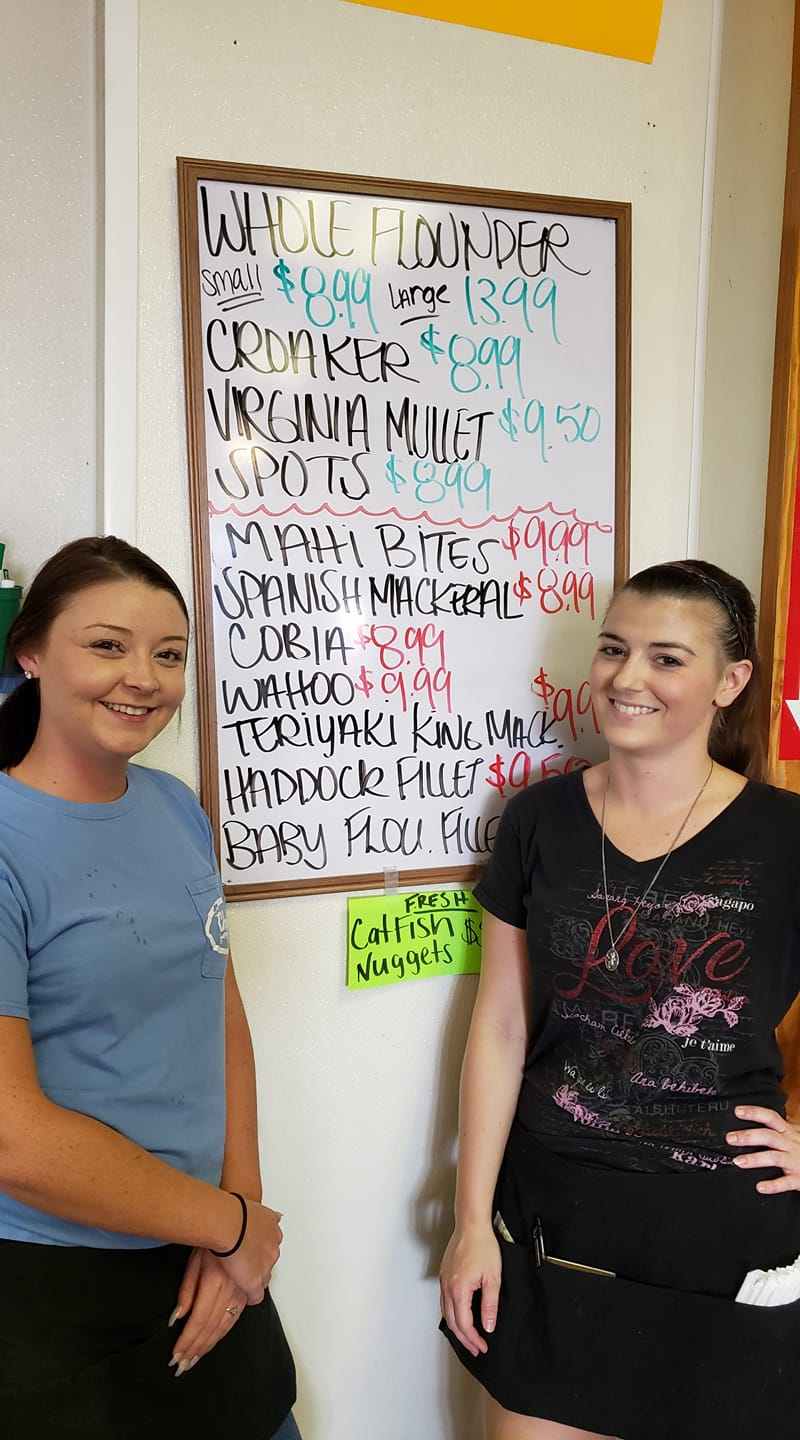 WHOLE FLOUNDER
small $8.99 LARGE 13.99
CROAKER $8.99
VIRGINIA MULLET $9.50
SPOTS $8.99
MAHI BITES $9.99
SPANISH MACKERAL $8.99
COBIA $8.99
WAHOO $9.99
TERIYAKI KING MACK. $9.9
HADDOCK FILLET $9.50
BABY FLOU. FILLE
FRESH
CatFish $
Nuggets
sagapo
Love
je t'aime
Ana behibek
AISHITERU